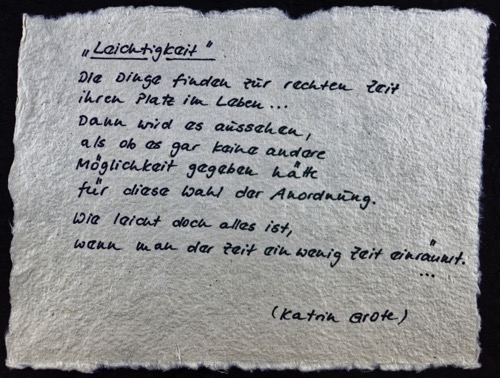 „Leichtigkeit"
Die Dinge finden zur rechten Zeit
ihren Platz im Leben...
Dann wird es aussehen,
als ob es gar keine andere
Möglichkeit gegeben hätte
für diese Wahl der Anordnung.
Wie leicht doch alles ist,
wenn man der Zeit ein wenig Zeit einräumt.
...
(Katrin Grote)